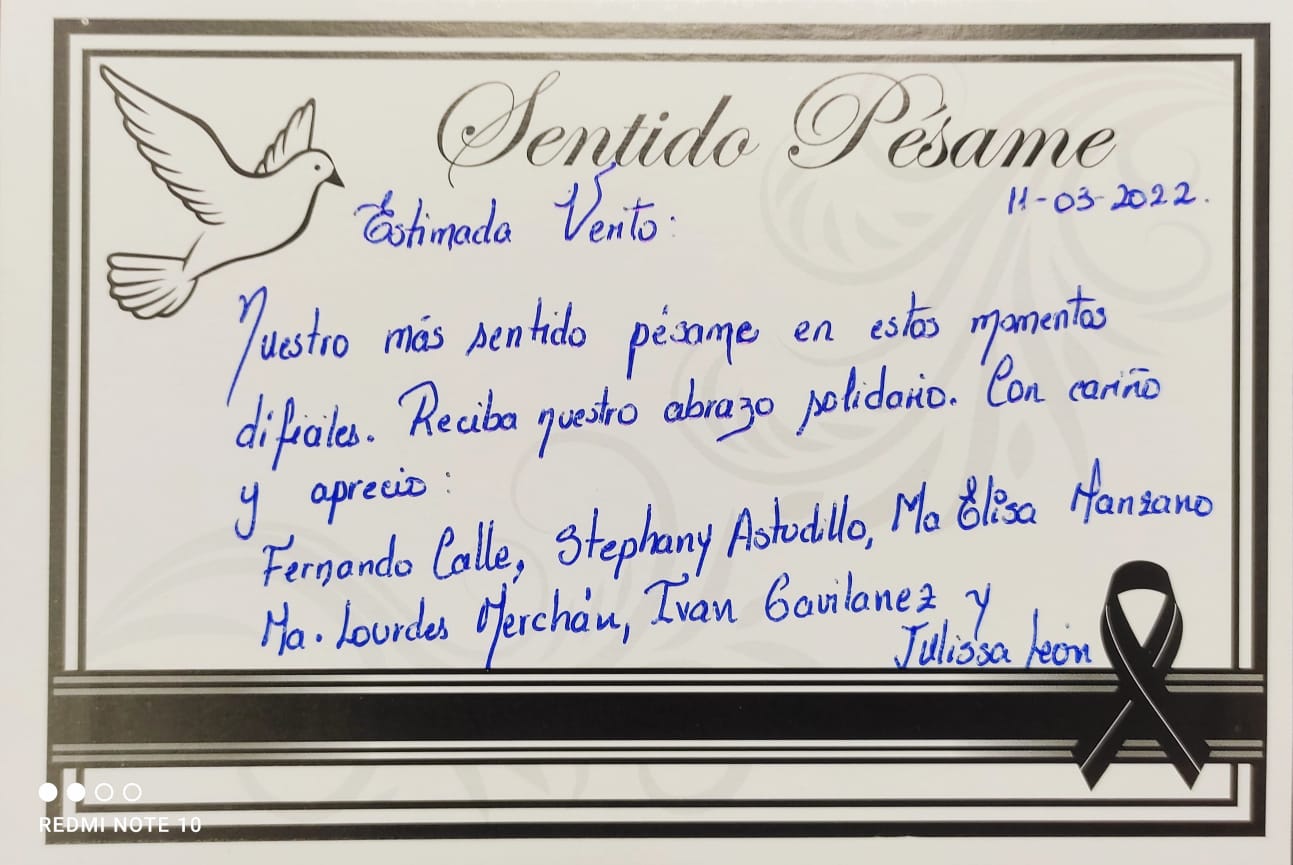 Sentido Pésame
11-03-2022.
Estimada Verito:
Nuestro más sentido pésame en estos momentos
difíciles. Reciba nuestro abrazo solidario. Con cariño
y aprecio:
Fernando Calle, Stephany Astudillo, Ma Elisa Manzano
Ma. Lourdes Merchán, Ivan Gavilanez y
Julissa León
REDMI NOTE 10